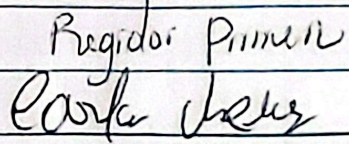 Regidor Primer
Carla